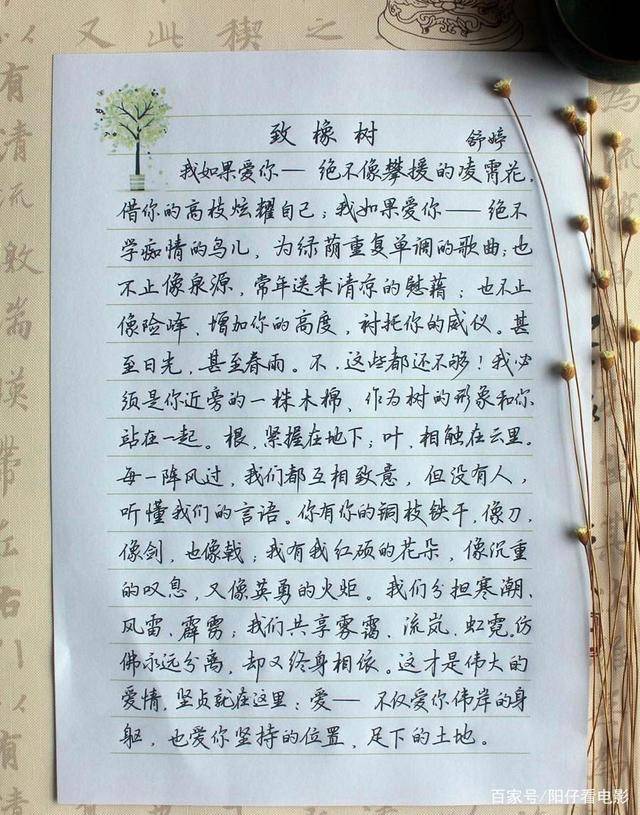 致橡树
舒婷
我如果爱你—— 绝不像攀援的凌霄花,
借你的高枝炫耀自己;我如果爱你—— 绝不
学痴情的鸟儿,为绿荫重复单调的歌曲;也
不止像泉源,常年送来清凉的慰藉;也不止
像险峰、增加你的高度,衬托你的威仪。甚
至日光,甚至春雨。不,这些都还不够!我必
须是你近旁的一株木棉、作为树的形象和你
站在一起。根,紧握在地下;叶,相触在云里。
每一阵风过,我们都互相致意,但没有人,
听懂我们的言语。你有你的铜枝铁干,像刀、
像剑,也像戟;我有我红硕的花朵,像沉重
的叹息,又像英勇的火炬。我们分担寒潮、
风雷、霹雳;我们共享雾霭、流岚、虹霓。仿
佛永远分离,却又终身相依。这才是伟大的
爱情,坚贞就在这里:爱—— 不仅爱你伟岸的身
躯,也爱你坚持的位置,足下的土地。
百家号/阳仔看电影
以又此稧之
有清流
映带左右
以有清